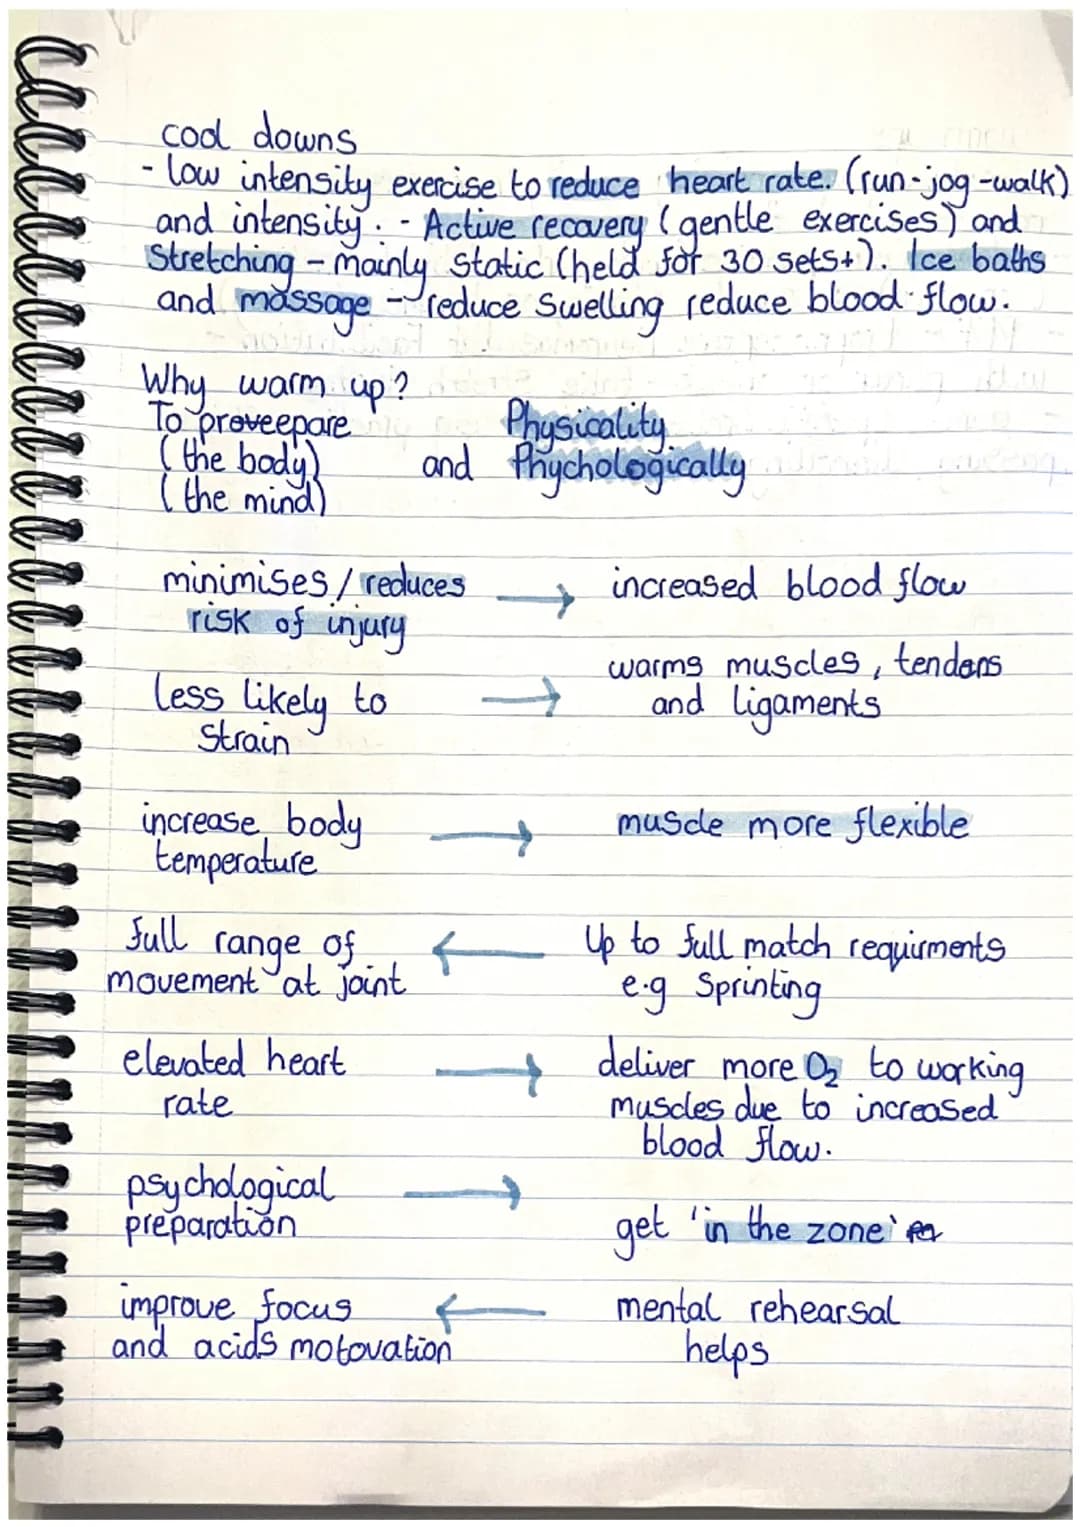 cool downs
- low intensity exercise to reduce heart rate. (run-jog-walk)
and intensity. - Active recovery (gentle exercises) and
Stretching - mainly static (held for 30 sets+). Ice baths
and massage - reduce swelling reduce blood flow.
Why warm up?
To proveepare Physicality
(the body) and Phychologically
(the mind)
minimises/reduces → increased blood flow
risk of injury
warms muscles, tendons
less likely to → and ligaments
strain
increase body → muscle more flexible
temperature
full range of ← Up to full match requirments
movement at joint e.g Sprinting
elevated heart → deliver more O₂ to working
rate muscles due to increased
blood flow.
psychological →
preparation get 'in the zone'
improve focus ← mental rehearsal
and acids motovation helps